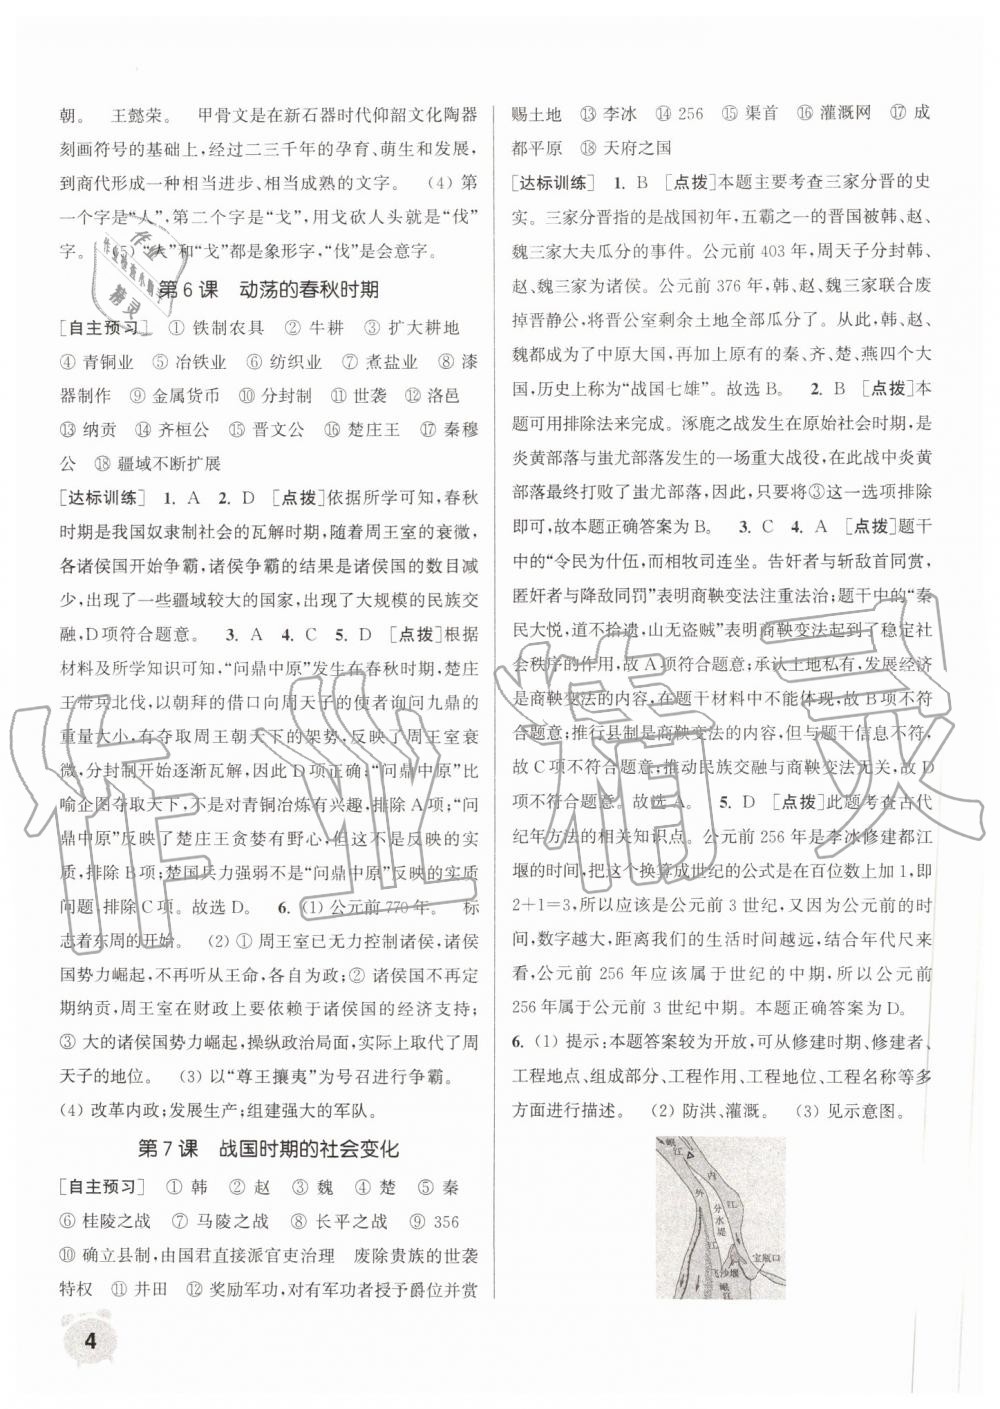 朝。　王懿荣。　甲骨文是在新石器时代仰韶文化陶器
刻画符号的基础上,经过二三千年的孕育、萌生和发展,
到商代形成一种相当进步、相当成熟的文字。　(4) 第
一个字是“人”,第二个字是“戈”,用戈砍人头就是“伐”
字。　(5) “人”和“戈”都是象形字,“伐”是会意字。
第 6 课　动荡的春秋时期
[自主预习]　① 铁制农具　② 牛耕　③ 扩大耕地
④ 青铜业　⑤ 冶铁业　⑥ 纺织业　⑦ 煮盐业　⑧ 漆
器制作　⑨ 金属货币　⑩ 分封制　⑪ 世袭　⑫ 洛邑
⑬ 纳贡　⑭ 齐桓公　⑮ 晋文公　⑯ 楚庄王　⑰ 秦穆
公　⑱ 疆域不断扩展
[达标训练]　1. A　2. D　[点拨]依据所学可知,春秋
时期是我国奴隶制社会的瓦解时期,随着周王室的衰微,
各诸侯国开始争霸,诸侯争霸的结果是诸侯国的数目减
少,出现了一些疆域较大的国家,出现了大规模的民族交
融,D项符合题意。　3. A　4. C　5. D　[点拨]根据
材料及所学知识可知,“问鼎中原”发生在春秋时期,楚庄
王带兵北伐,以朝拜的借口向周天子的使者询问九鼎的
重量大小,有夺取周王朝天下的架势,反映了周王室衰
微,分封制正逐渐瓦解,因此D项正确;“问鼎中原”比
喻企图夺取天下,不是对青铜冶炼有兴趣,排除A项;“问
鼎中原”反映了楚庄王贪婪有野心,但不是反映的实质,
排除B项;楚国兵力强弱不是“问鼎中原”反映的实质
问题,排除C项。故选D。　6. (1) 公元前770年。　标
志着东周的开始。　(2) ① 周王室已无力控制诸侯,诸侯
国势力崛起,不再听从王命,各自为政;② 诸侯国不再定
期纳贡,周王室在财政上要依赖诸侯国的经济支持;
③ 大的诸侯国势力崛起,操纵政治局势,实际上取代了周
天子的地位。　(3) 以“尊王攘夷”为号召进行争霸。
(4) 改革内政;发展生产;组建强大的军队。
第 7 课　战国时期的社会变化
[自主预习]　① 韩　② 赵　③ 魏　④ 楚　⑤ 秦
⑥ 桂陵之战　⑦ 马陵之战　⑧ 长平之战　⑨ 356
⑩ 确立县制,由国君直接派官吏治理　废除贵族的世袭
特权　⑪ 井田　⑫ 奖励军功,对有军功者授予爵位并赏
赐土地　⑬ 李冰　⑭ 256　⑮ 渠首　⑯ 灌溉网　⑰ 成
都平原　⑱ 天府之国
[达标训练]　1. B　[点拨]本题主要考查三家分晋的史
实。三家分晋指的是战国初年,五霸之一的晋国被韩、赵、
魏三家大夫瓜分的事件。公元前 403 年,周天子分封韩、
赵、魏三家为诸侯。公元前 376 年,韩、赵、魏三家联合废
掉晋静公,将晋公室剩余土地全部瓜分了。从此,韩、赵、
魏都成为了中原大国,再加上原有的秦、齐、楚、燕四个大
国,历史上称为“战国七雄”。故选B。　2. B　[点拨]本
题可用排除法来完成。涿鹿之战发生在原始社会时期,是
炎黄部落与蚩尤部落的一场重大战役,在此战中炎黄
部落最终打败了蚩尤部落,因此,只要将③这一选项排除
即可,故本题正确答案为B。　3. C　4. A　[点拨]题干
中的“令民为什伍,而相牧司连坐。告奸者与斩敌首同赏,
匿奸者与降敌同罚”表明商鞅变法注重法治;题干中的“秦
民大悦,道不拾遗,山无盗贼”表明商鞅变法起到了稳定社
会秩序的作用,故A项符合题意;承认土地私有,发展经济
是商鞅变法的内容,在题干材料中不能体现,故B项不符
合题意;推行县制是商鞅变法的内容,但与题干信息不符,
故C项不符合题意;推动民族交融与商鞅变法无关,故D
项不符合题意。故选A。　5. D　[点拨]此题考查古代
纪年方法的相关知识点。公元前 256 年是李冰修建都江
堰的时间,把这个换算成世纪的公式是在百位数上加1,即
2+1=3,所以应该是公元前 3 世纪,又因为公元前的时
间,数字越大,距离我们的生活时间越远,结合年代尺来
看,公元前 256 年应该属于世纪的中期,所以公元前
256 年属于公元前 3 世纪中期。本题正确答案为D。
6. (1) 提示:本题答案较为开放,可从修建时期、修建者、
工程地点、组成部分、工程作用、工程地位、工程名称等多
方面进行描述。　(2) 防洪、灌溉。　(3) 见示意图。
岷江
内江
外江
分水堤
宝瓶口
飞沙堰
岷江
4
作业精灵